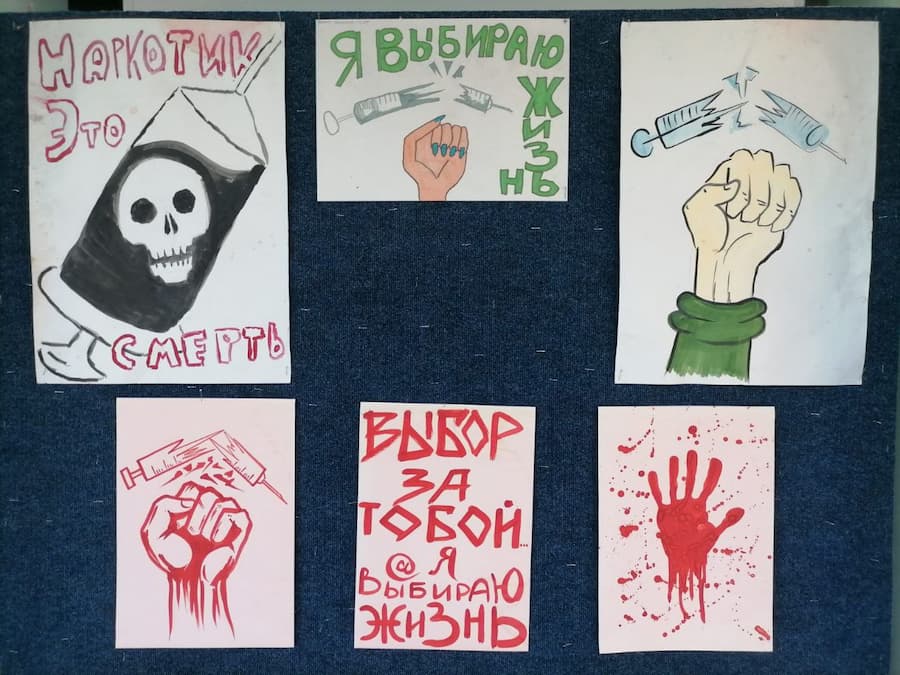 НАРКОТИК
ЭТО
СМЕРТЬ
Я ВЫБИРАЮ
ЖИЗНЬ
ВЫБОР
ЗА
ТОБОЙ...
@ Я
ВЫБИРАЮ
ЖИЗНЬ